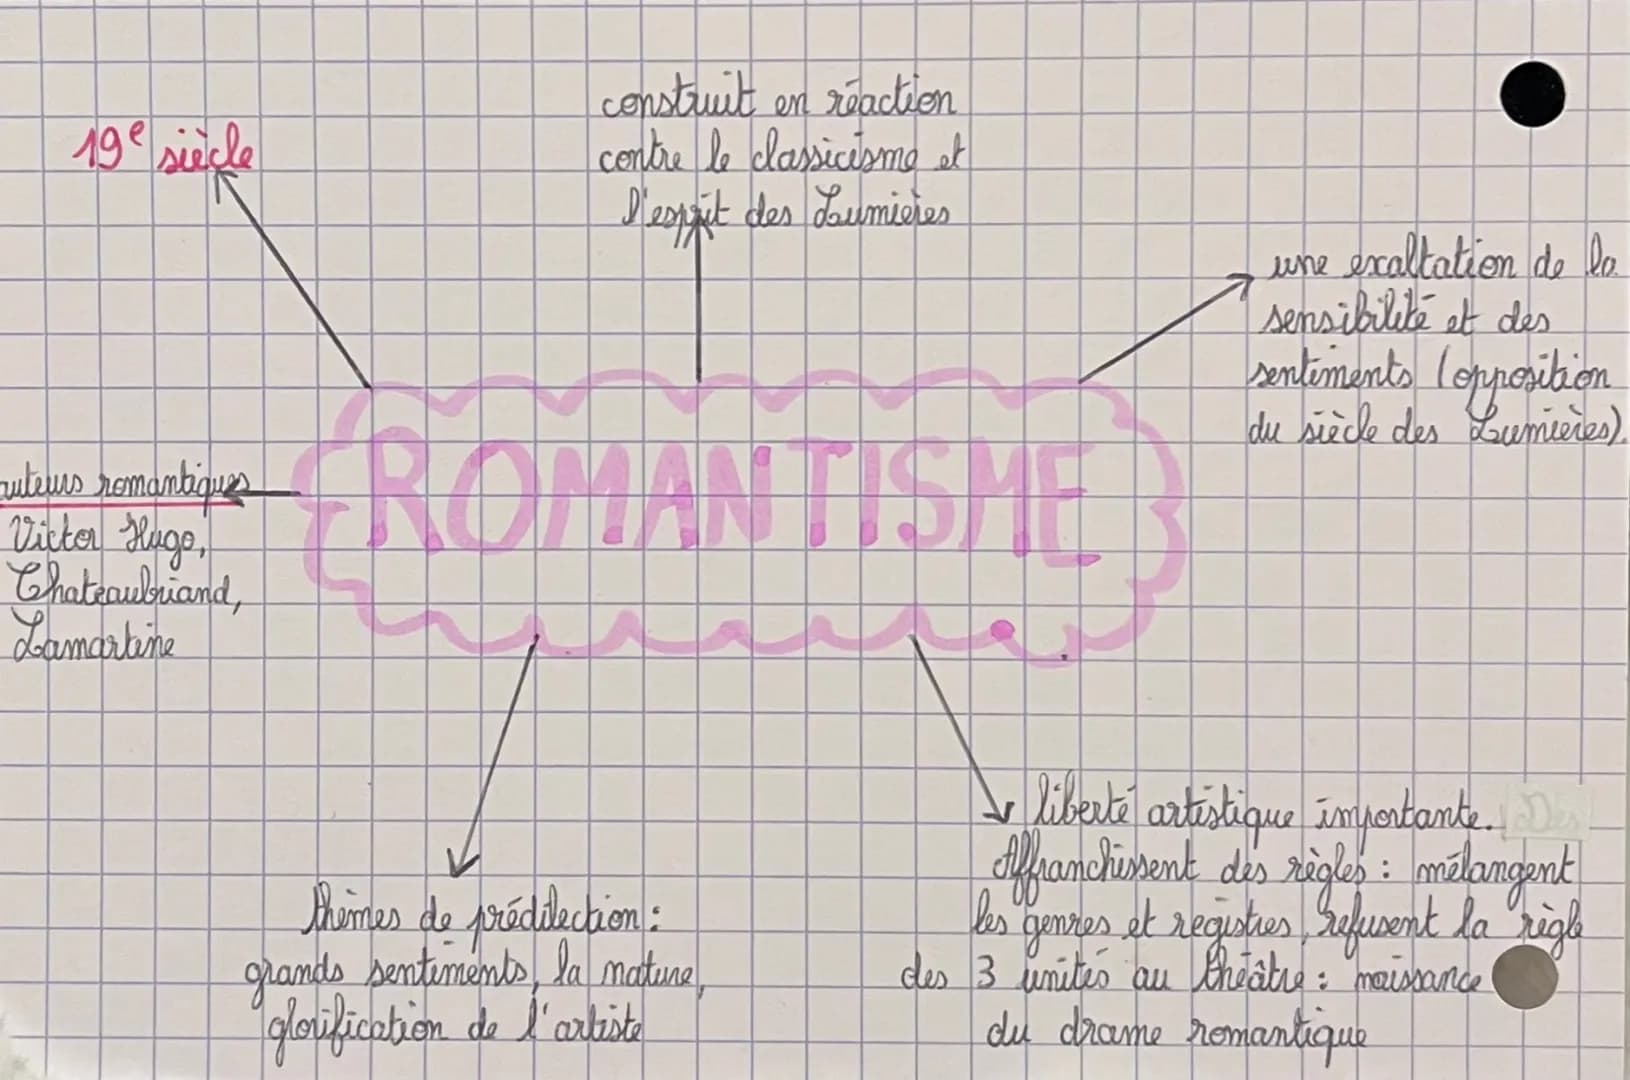 19e siècle
construit en réaction
contre le classicisme et
l'esprit des Lumières
une exaltation de la
sensibilité et des
sentiments (opposition
du siècle des Lumières).
ROMANTISME
auteurs romantiques
Victor Hugo,
Chateaubriand,
Lamartine
thèmes de prédilection :
grands sentiments, la nature,
glorification de l'artiste
liberté artistique importante. Des
Affranchissent des règles : mélangent
les genres et registres, refusent la règle
des 3 unités au théâtre : naissance
du drame romantique